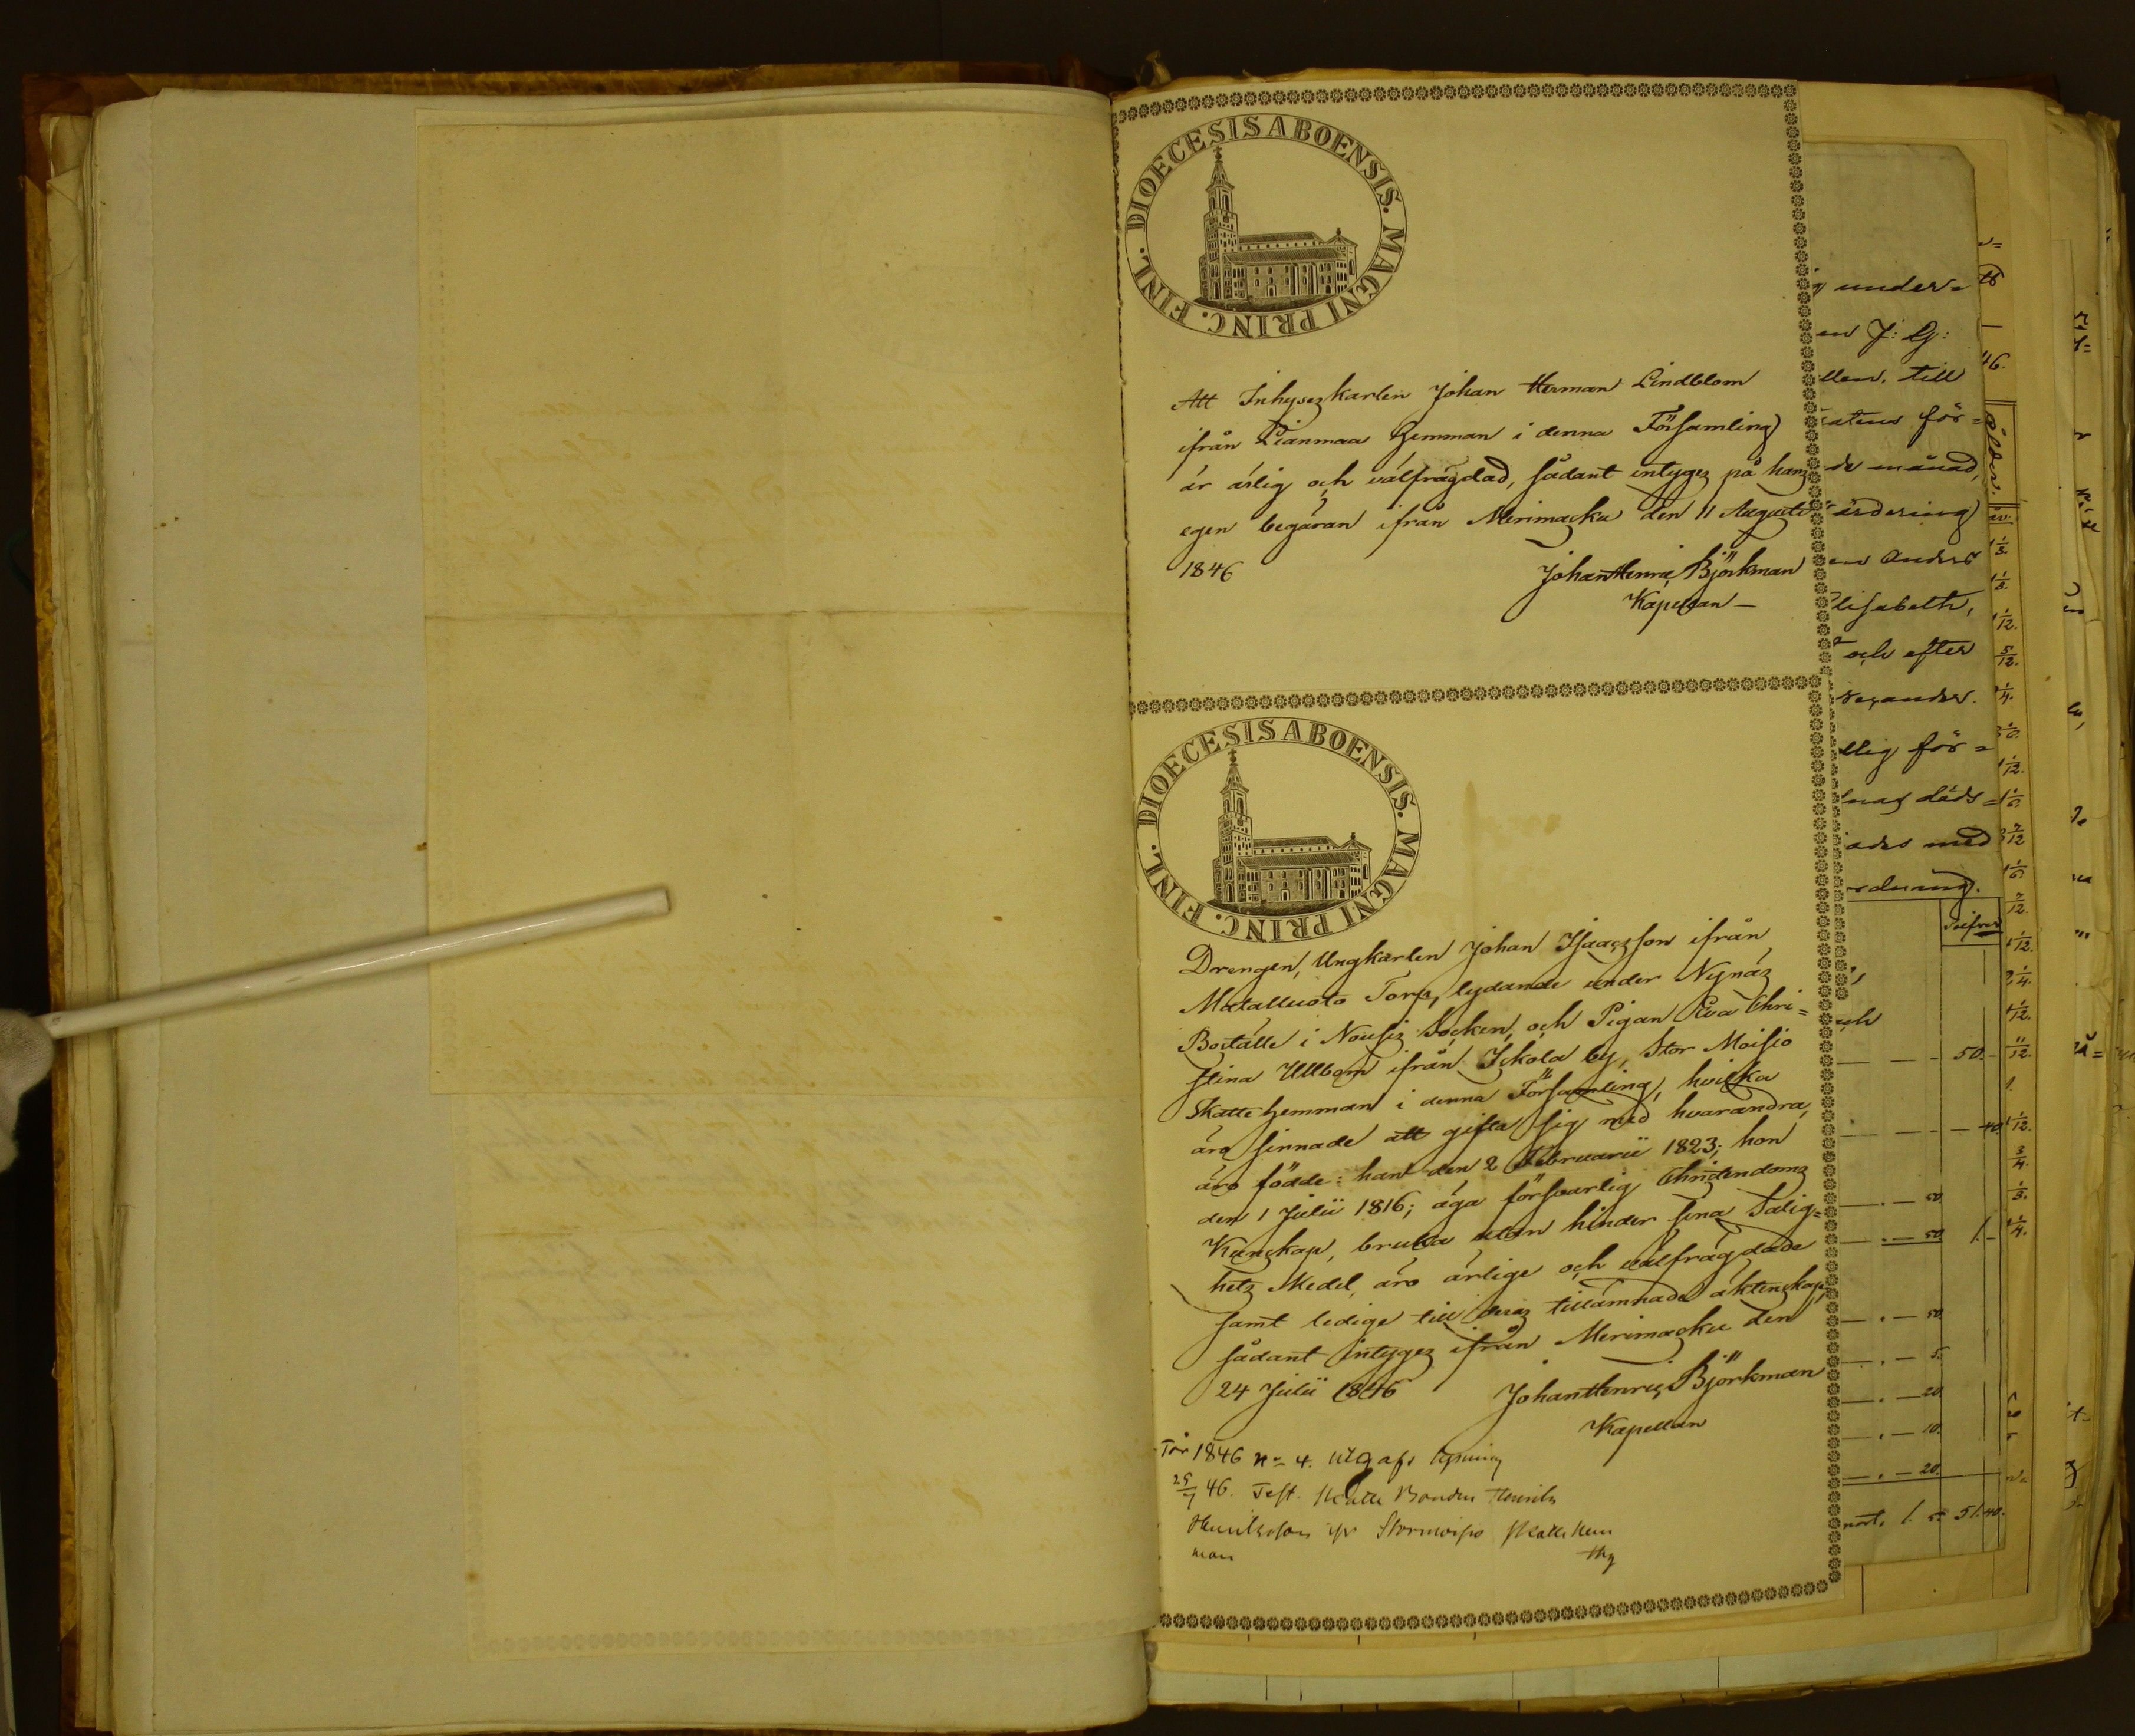 DIOECESIS ABOENSIS. MAGNI PRINC. FINL.
Att Inhyseskarlen Johan Herman Lindblom
ifrån Hemman i denna Församling
är ärlig och välfrägdad, sådant intygas på hans
egen begäran ifrån Merimasku den 11 Augusti
1846 Johan Henric Björkman
Kapellan
DIOECESIS ABOENSIS. MAGNI PRINC. FINL.
Drengen, Ungkarlen Johan Isaacsson ifrån
Matalluoto Torp, lydande under Nynäs
Boställe i Nousis Socken, och Pigan Eva Chri=
stina Ullbom ifrån Iskola by, Stor Moisio
Skatte Hemman i denna Församling, hvilka
äro sinnade att gifta sig med hvarandra,
äro födde: han den 2 Februarii 1823; hon
den 1 Julii 1816; äga försvarlig Christendoms
Kunskap, bruka utan hinder sina Salig=
hets Medel, äro ärlige och välfrägdade
samt ledige till deras tillämnade äktenskap,
sådant intygas ifrån Merimasku den
24 Julii 1846 Johan Henric Björkman
Kapellan
1846 No 4. lysning
25/7 46. Test. Skatte Bonden Henrik
Henriksson Stormoisio Skatte Hem
man
under=
J: G:
till
för=
månad,
ärdering
Anders
Elisabeth,
och efter
för=
med
Ålder.
50.
50
50
50
5.
20.
10.
20.
51.40.